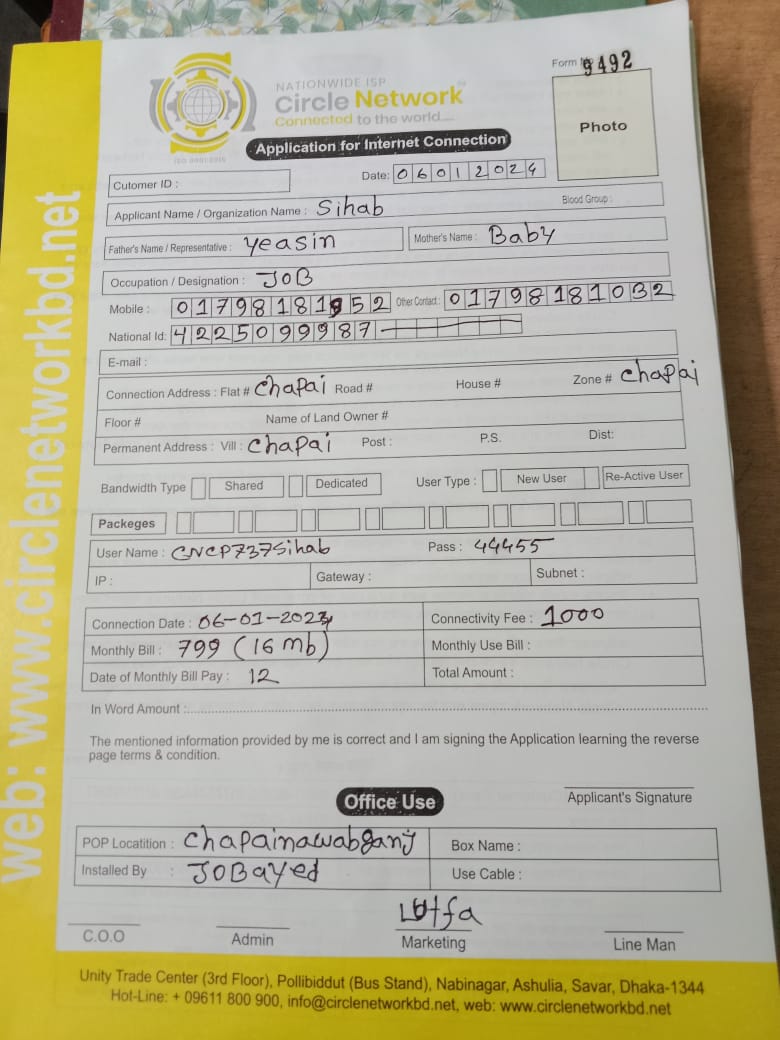 web: www.circlenetworkbd.net
NATIONWIDE ISP
Circle Network
Connected to the world....
ISO 9001:2015
Form No 9492
Photo
Application for Internet Connection
Cutomer ID :
Date: 06012024
Applicant Name / Organization Name : Sihab Blood Group :
Father's Name / Representative : yeasin Mother's Name : Baby
Occupation / Designation : JOB
Mobile : 01798181952 Other Contact : 01798181032
National Id: 4225099987
E-mail :
Connection Address : Flat # Chapai Road # House # Zone # Chapai
Floor # Name of Land Owner #
Permanent Address : Vill : Chapai Post : P.S. Dist:
Bandwidth Type Shared Dedicated User Type : New User Re-Active User
Packeges
User Name : CNCP737Sihab Pass : 44455
IP : Gateway : Subnet :
Connection Date : 06-01-2024 Connectivity Fee : 1000
Monthly Bill : 799 (16 mb) Monthly Use Bill :
Date of Monthly Bill Pay : 12 Total Amount :
In Word Amount :
The mentioned information provided by me is correct and I am signing the Application learning the reverse
page terms & condition.
Applicant's Signature
Office Use
POP Locatition : Chapainawabganj Box Name :
Installed By : JOBayed Use Cable :
Lotfa
C.O.O Admin Marketing Line Man
Unity Trade Center (3rd Floor), Pollibiddut (Bus Stand), Nabinagar, Ashulia, Savar, Dhaka-1344
Hot-Line: + 09611 800 900, info@circlenetworkbd.net, web: www.circlenetworkbd.net